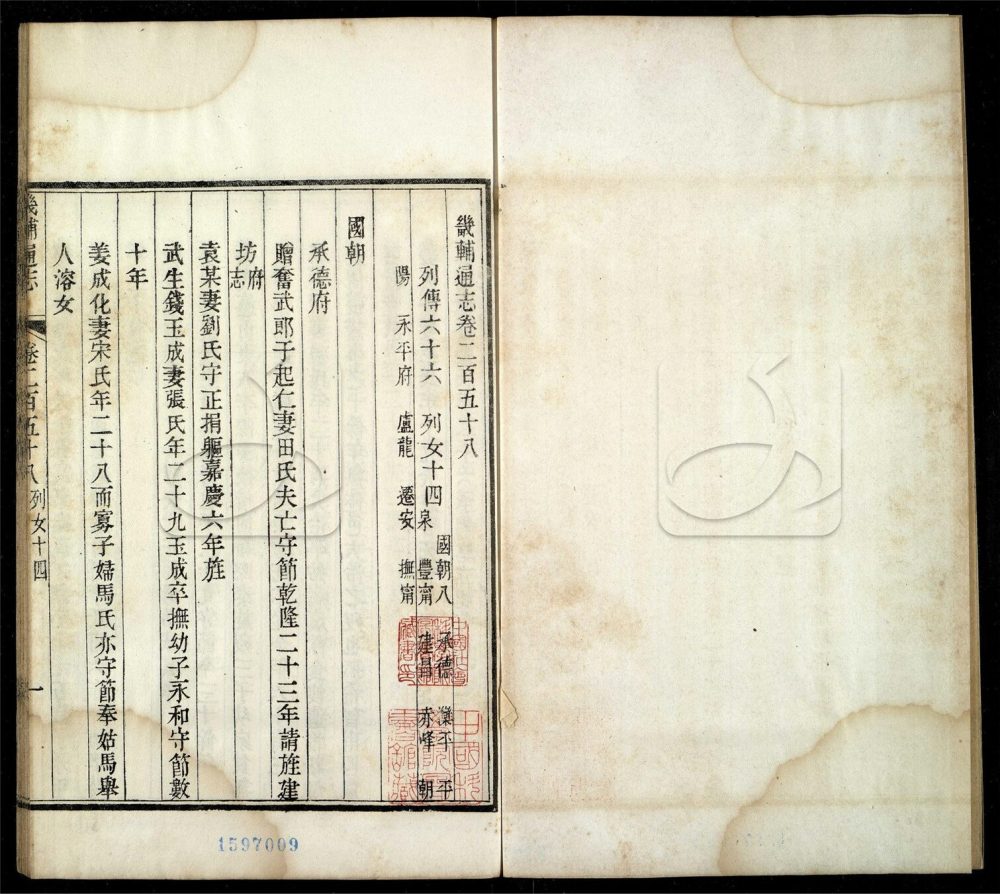 畿輔通志卷二百五十八
列傳六十六 列女十四 國朝八 承德 灤平 平
泉 豐甯 建昌 赤峰 朝
陽 永平府 盧龍 遷安 撫甯
國朝
承德府
贈奮武郎子起仁妻田氏夫亡守節乾隆二十三年請旌建
坊府志
袁某妻劉氏守正捐軀嘉慶六年旌
武生錢玉成妻張氏年二十九玉成卒撫幼子永和守節數
十年
姜成化妻宋氏年二十八而寡子婦馬氏亦守節奉姑馬舉
人溶女
畿輔通志 卷二百五十八 列女十四 一
1597009